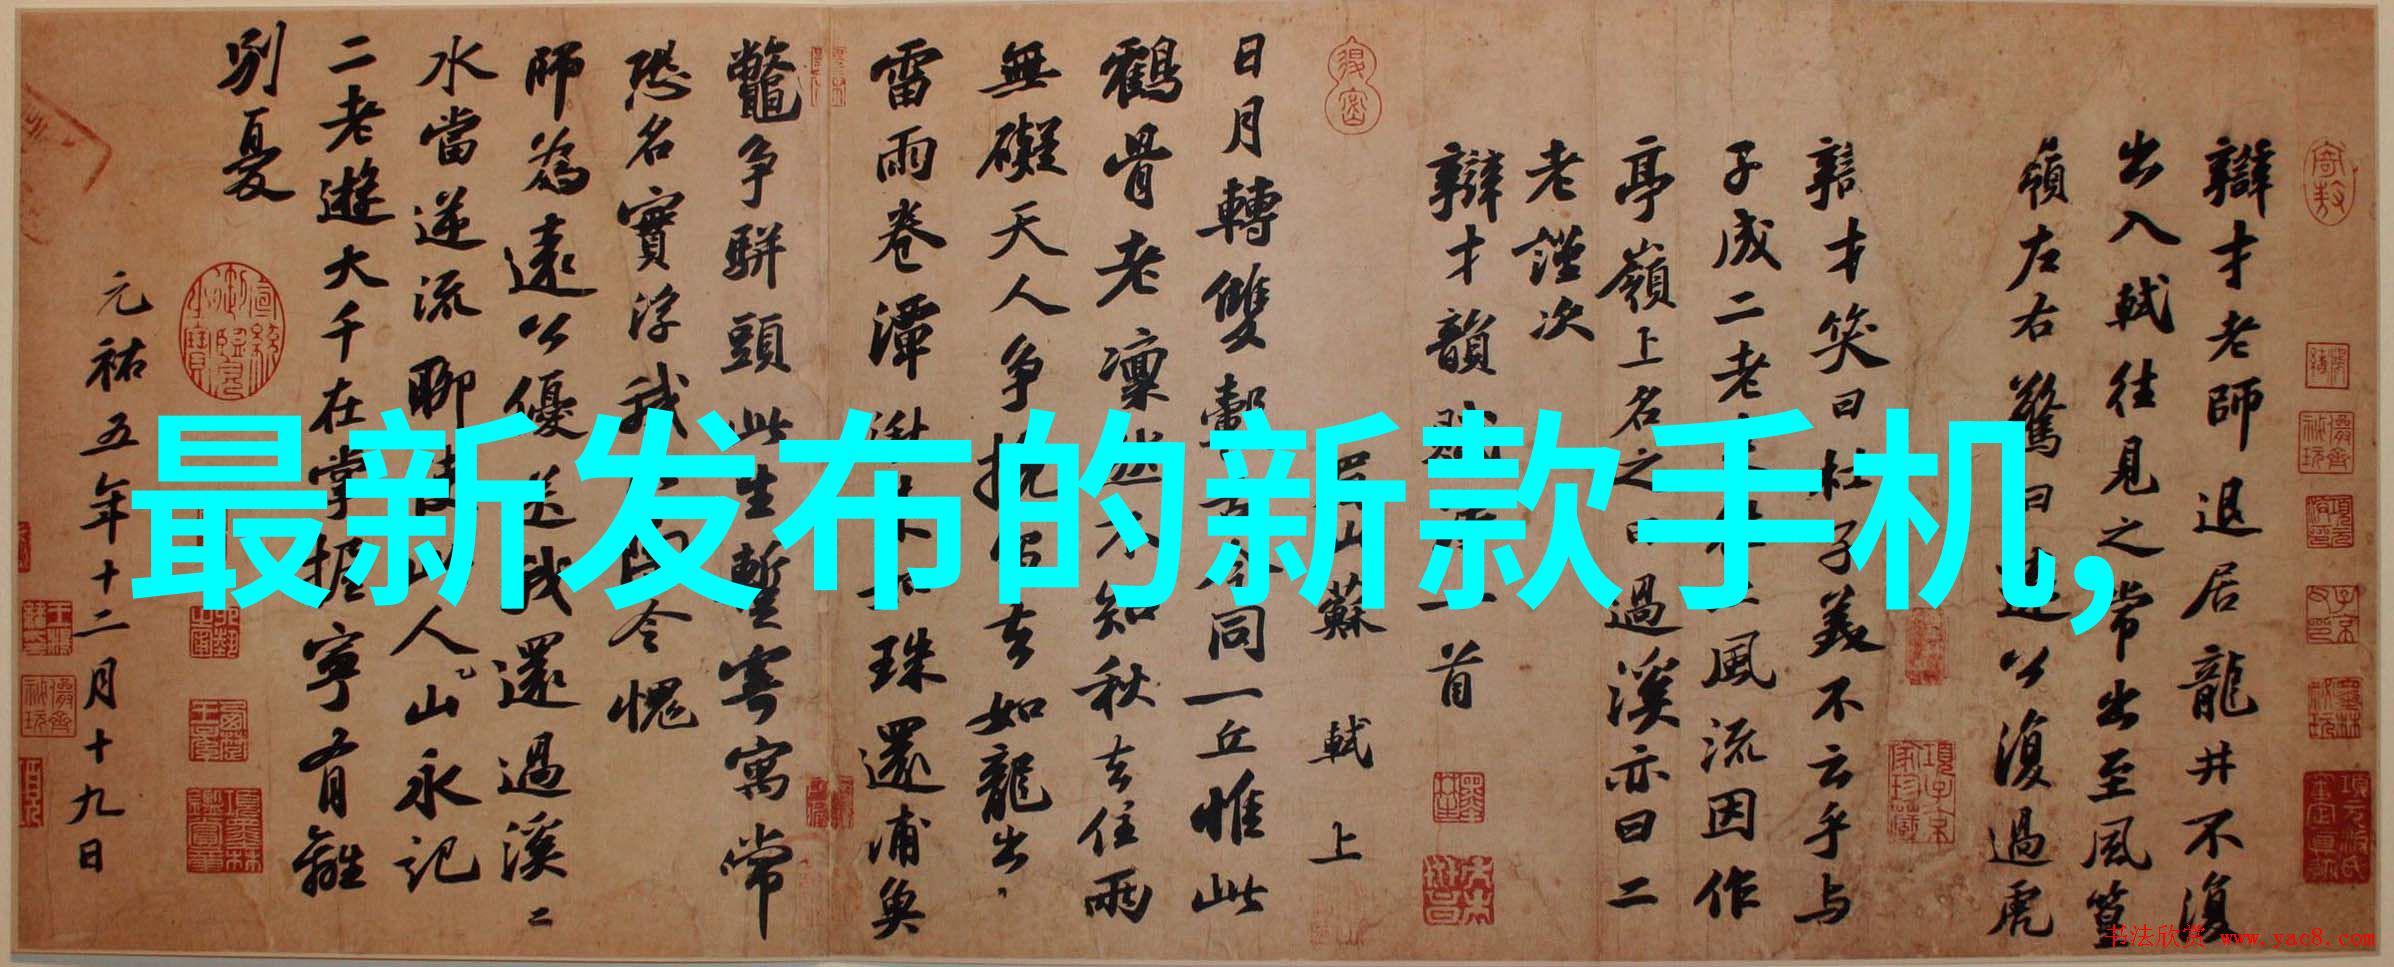 辯才老師退居龍井不復
出入軾往見之常出至風篁
嶺左右驚曰遠公復過虎
辯才笑曰杜子美不云乎与
子成二老來往亦風流因作
亭嶺上名之曰過溪亦曰二
老謹次
辯才韻賦詩一首
眉山蘇軾上
日月轉雙轂古今同一丘惟此
鶴骨老凜然不知秋去住兩
無礙天人争挽留去如龍出
雷雨卷潭湫來如珠還浦魚
鼈争駢頭此生暫寄寓常
恐名實浮我比陶令愧
師為遠公優送我還過溪二
水當逆流聊使此山人山永記
二老遊大千在掌握寧有離
別憂
元祐五年十二月十九日
最新发布的新款手机,
书法欣赏 www.yac8.com